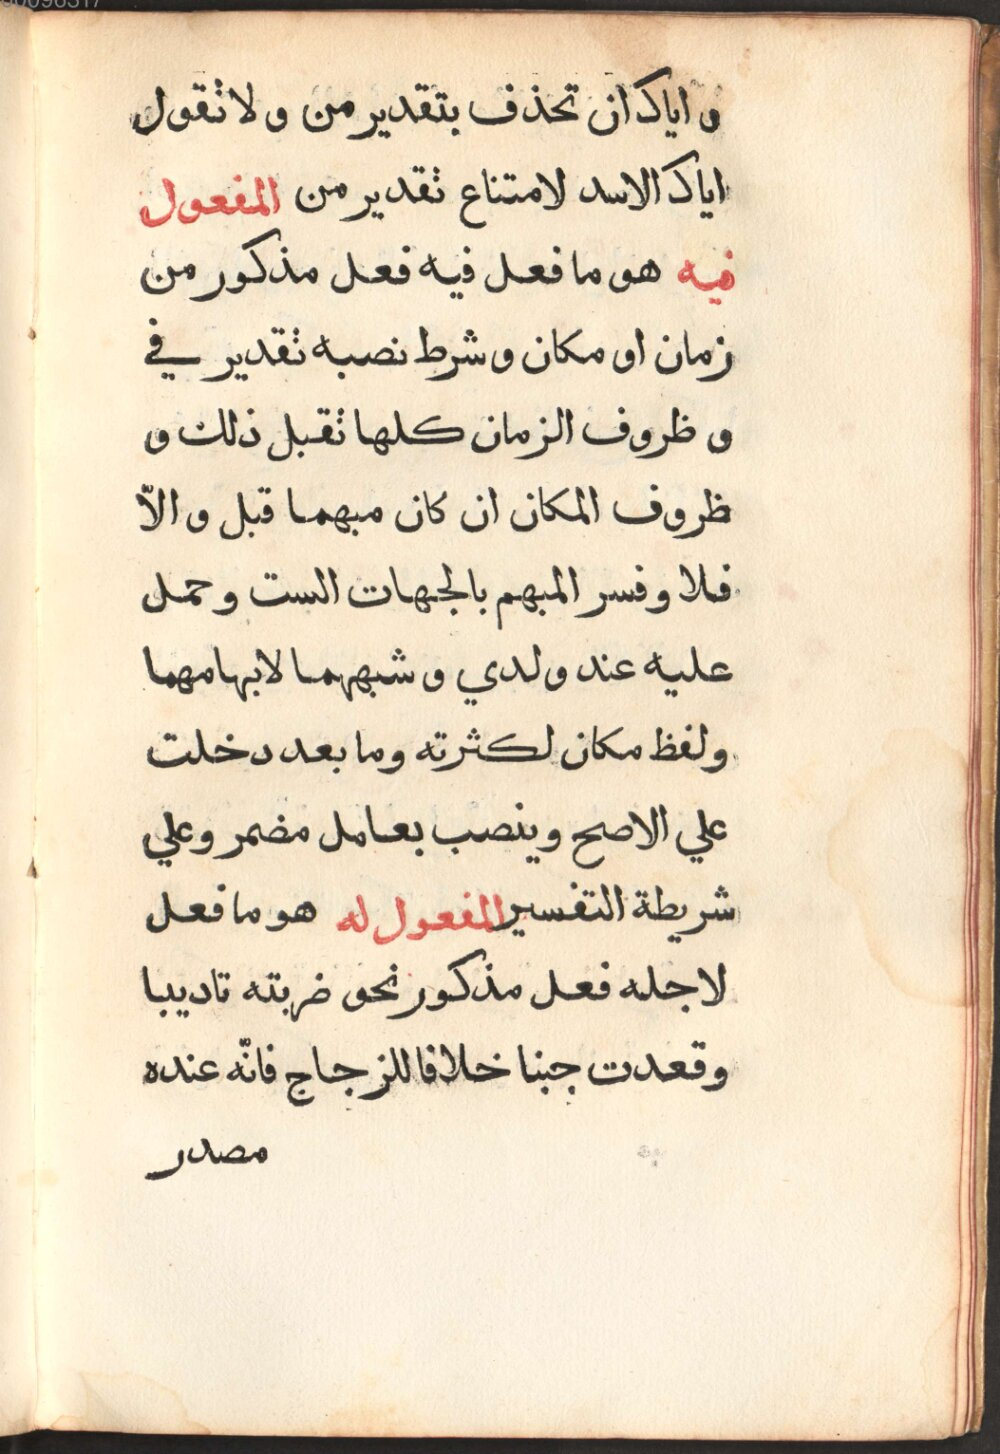 و اياك ان تحذف بتقدير من و لا تقول
اياك الاسد لامتناع تقدير من المفعول
فيه هو ما فعل فيه فعل مذكور من
زمان او مكان و شرط نصبه تقدير في
و ظروف الزمان كلها تقبل ذلك و
ظروف المكان ان كان مبهما قبل و الاّ
فلا و فسر المبهم بالجهات الست و حمل
عليه عند ولدي و شبههما لابهامهما
ولفظ مكان لكثرته وما بعد دخلت
علي الاصح و ينصب بعامل مضمر وعلي
شريطة التفسير المفعول له هو ما فعل
لاجله فعل مذكور نحو ضربته تاديبا
وقعدت جبنا خلافا للزجاج فانّه عنده
مصدر